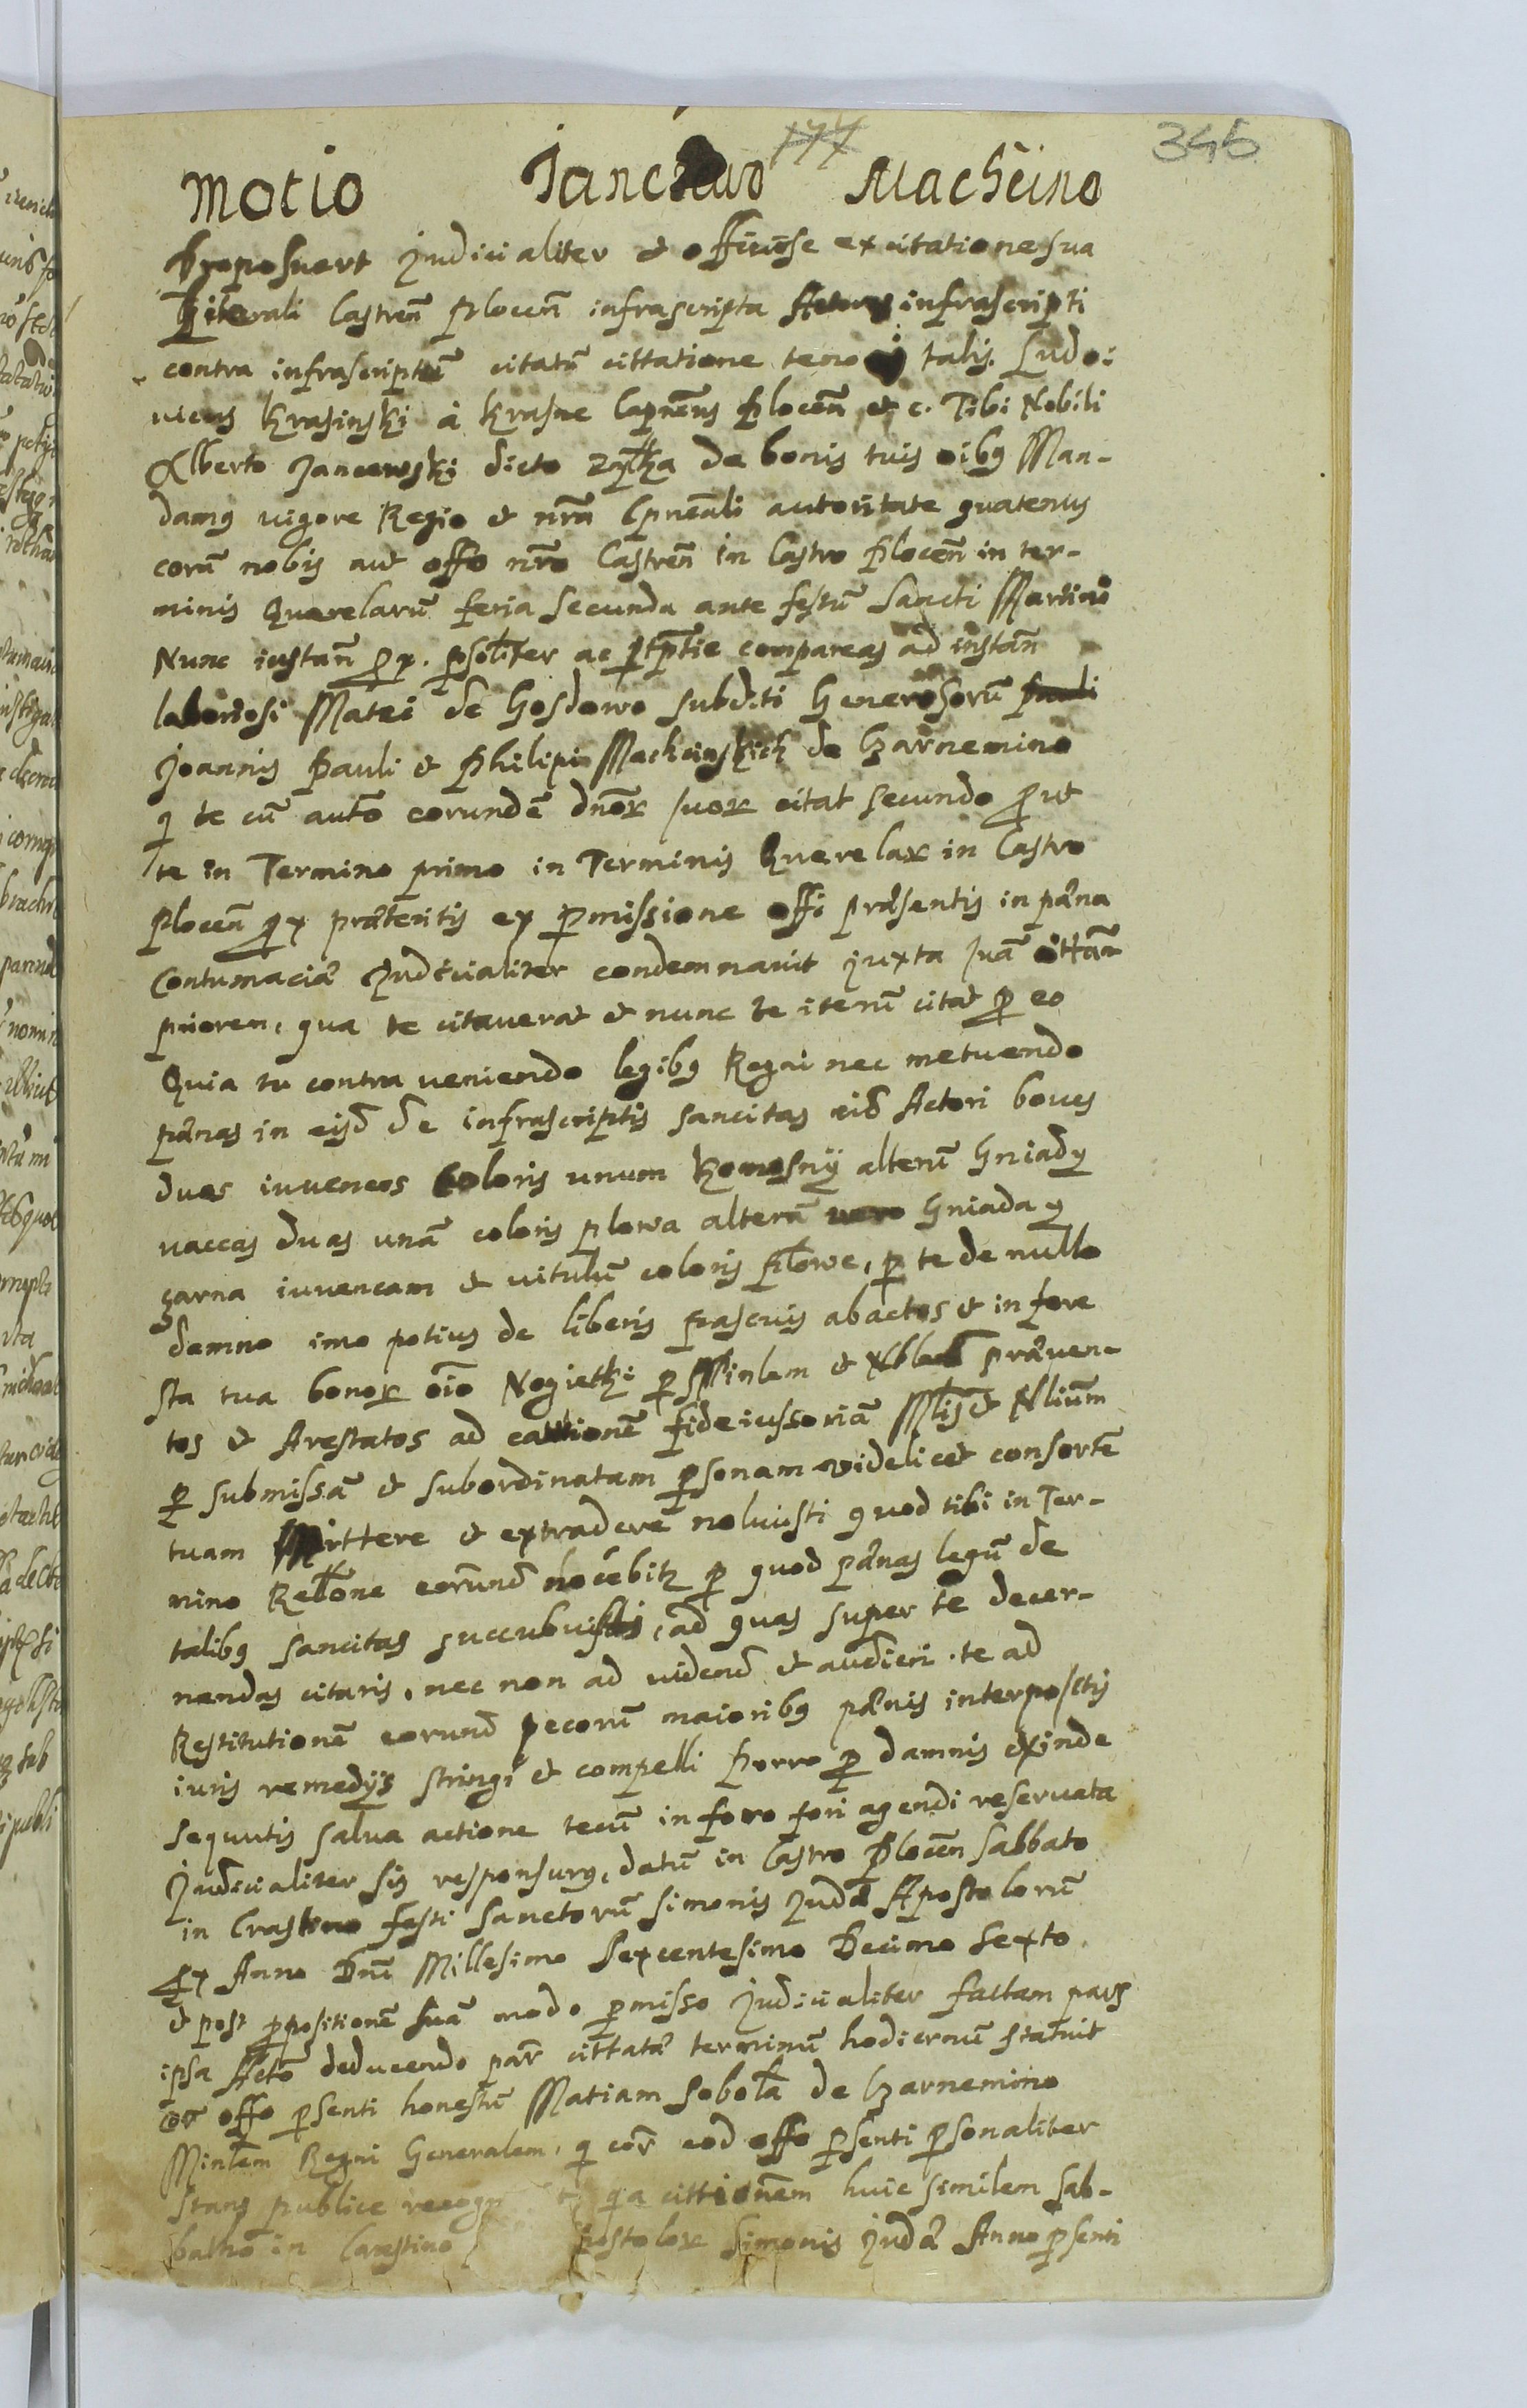 174 346
Motio Jancewo Machcino
Proposuere Judicialiter et officiose ex citatione sua
literali Castren̄ Plocen̄ infrascripta Actoris infrascripti
contra infrascriptū citatū cittatione tenoris talis. Ludo:
uicus Krasinski à Krasne Capneūs Plocen̄ etc. Tibi Nobili
Alberto Jancewski dicto de bonis tuis oībq Man-
damq uigore Regio et nrā Cpneali autoritate quatenus
corā nobis aut offo nrō Castren̄ in Castro Plocen̄ in ter-
minis Querelarū feria secunda ante festū Sancti Martini
Nunc instan̄ px. psoliter ac ptptie compareas ad instan̄
laboriosi Matei de Gosdowo subditi Generosorū
Joannis Pauli et Philipi Machcinskich de Czarnemino
q te cū auto eorundē dnor suor citat secundo put
te in Termino primo in Terminis Querelar in Castro
Plocen̄ px præteritis ex pmissione offi præsentis in pæna
Contumaciæ Judicialiter condemnauit juxta suā cittān
priorem, qua te citauerat et nunc te iterū citat p eo
Quia tu contra ueniendo legibq Regni nec metuendo
pænas in eisd de infrascriptis sancitas eid Actori boues
duos iuuencos coloris unum Komosny alterū Gniady
uaccas duas unā coloris plowa alterā uero Gniada y
Czarna iuuencam et uitulū coloris plowe, p te de nullo
damno imo potius de liberis pascuis abactos et in fore
sta tua bonor oīo Nogietki p Minlem et Nbles præuen-
tos et Arestatos ad cautionē fideiussoriā Mlis et Nliūm
p submissā et subordinatam psonam uidelicet consortē
tuam Mittere et extradere noluisti quod tibi in Ter-
mino Retione eorund docebitz p quod pænas legū de
talibq sancitas succubuisti, ad quas super te decer-
nendas citaris, nec non ad uidend et audien. te ad
Restitutionē eorund pecorū maioribq pænis interpositis
iuris remedÿs stringi et compelli Porro p damnis exinde
sequutis salua actione tecū in foro fori agendi reseruata
Judicialiter sis responsurq, datū in Castro Plocen̄ Sabbato
in Crastino festi Sanctorū Simonis Judæ Apostolorū
Px Anno Dnī Millesimo Sexcentesimo Decimo Sexto
et post ppositionē suā modo pmisso Judicialiter factam pars
ipsa Acto deducendo par cittatæ terminū hodiernū statuit
cor offo psenti honestū Matiam Sobola de Czarnemino
Minlem Regni Generalem, q cor eod offo psenti psonaliter
stans publice recogn qa cittionem huic similem Sab-
batho in Crastino postolor Simonis Judæ Anno psenti